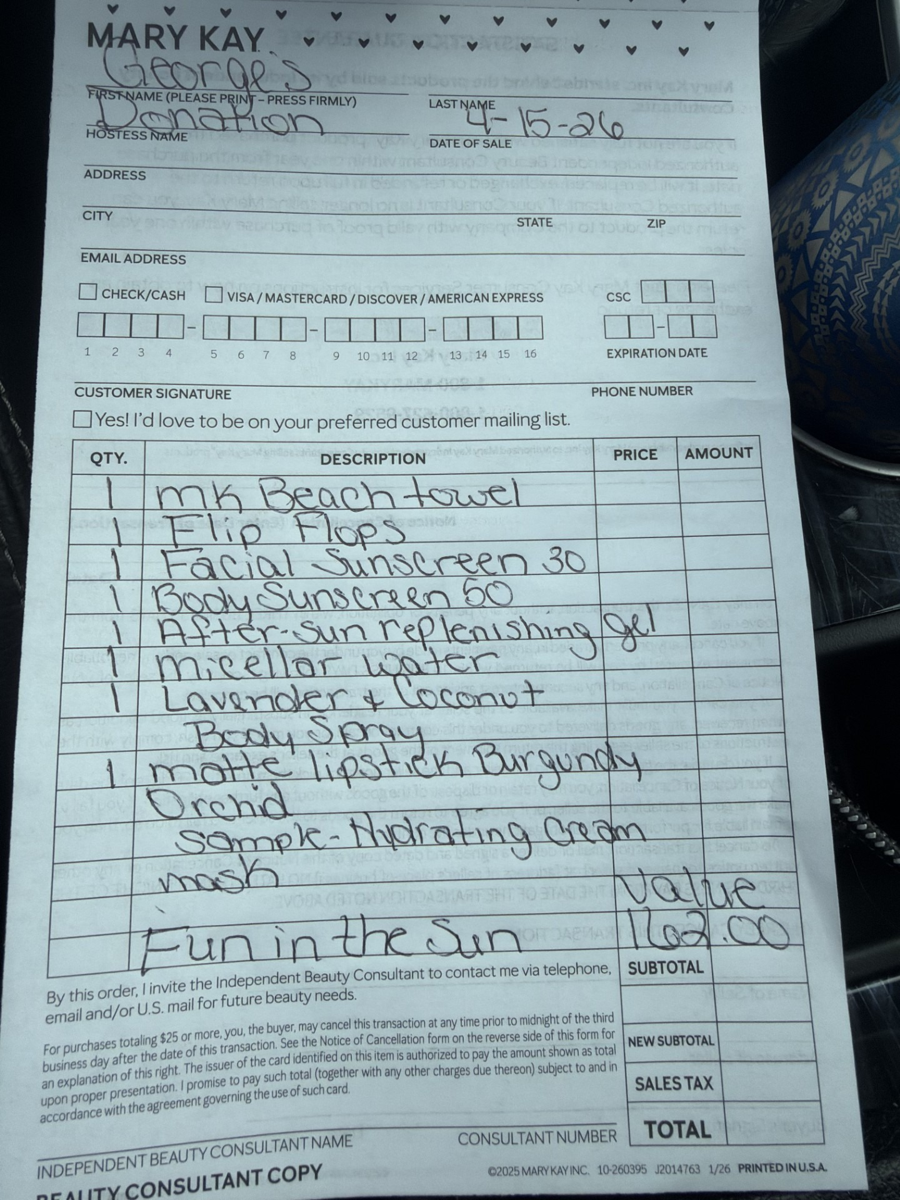 MARY KAY
Georges
FIRST NAME (PLEASE PRINT – PRESS FIRMLY) LAST NAME
Donation 4-15-26
HOSTESS NAME DATE OF SALE
ADDRESS
CITY STATE ZIP
EMAIL ADDRESS
CHECK/CASH VISA / MASTERCARD / DISCOVER / AMERICAN EXPRESS CSC
1 2 3 4 5 6 7 8 9 10 11 12 13 14 15 16 EXPIRATION DATE
CUSTOMER SIGNATURE PHONE NUMBER
Yes! I'd love to be on your preferred customer mailing list.
QTY. DESCRIPTION PRICE AMOUNT
1 MK Beach towel
1 Flip Flops
1 Facial Sunscreen 30
1 Body Sunscreen 50
1 After-sun replenishing gel
1 micellar water
1 Lavender & Coconut
Body Spray
1 matte lipstick Burgundy
Orchid
Sample-Hydrating Cream
mask
value
Fun in the Sun 162.00
By this order, I invite the Independent Beauty Consultant to contact me via telephone,
email and/or U.S. mail for future beauty needs.
SUBTOTAL
For purchases totaling $25 or more, you, the buyer, may cancel this transaction at any time prior to midnight of the third
business day after the date of this transaction. See the Notice of Cancellation form on the reverse side of this form for
an explanation of this right. The issuer of the card identified on this item is authorized to pay the amount shown as total
upon proper presentation. I promise to pay such total (together with any other charges due thereon) subject to and in
accordance with the agreement governing the use of such card.
NEW SUBTOTAL
SALES TAX
TOTAL
INDEPENDENT BEAUTY CONSULTANT NAME CONSULTANT NUMBER
BEAUTY CONSULTANT COPY ©2025 MARY KAY INC. 10-260395 J2014763 1/26 PRINTED IN U.S.A.